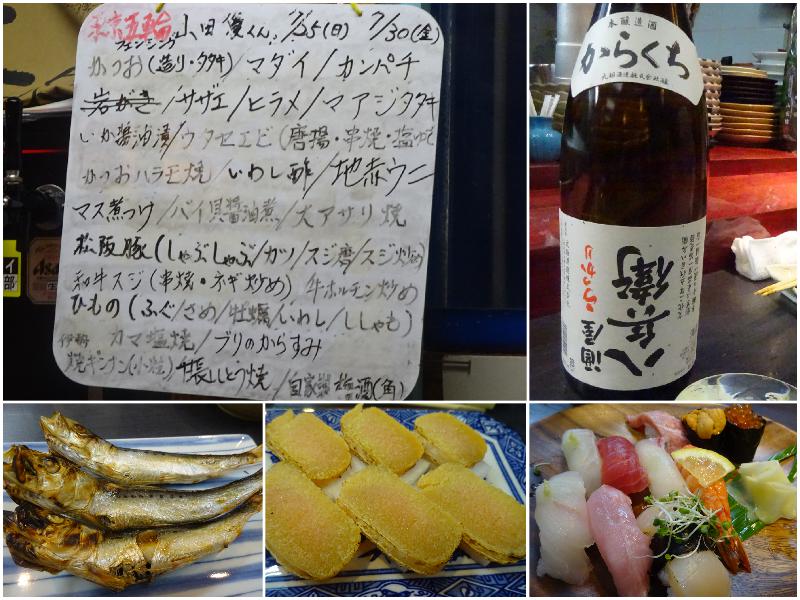 東京五輪 フェンシング 山田優くん! 7/25(日) 7/30(金)
かつお(造り・タタキ)/マダイ/カンパチ
岩がき/サザエ/ヒラメ/マアジタタキ
いか醤油漬/ウタセエビ(唐揚・串焼・塩焼
かつおハラモ焼/いわし酢/地赤ウニ
マス煮つけ/バイ貝醤油煮/大アサリ焼
松阪豚(しゃぶしゃぶ/カツ/スジ磨/スジ炒め)
和牛スジ(串焼・ネギ炒め) 牛ホルモン炒め
ひもの(ふぐ/さめ/牡蠣/いわし/ししゃも)
カマ塩焼/ブリのからすみ
焼ギンナン(小粒) しとう焼/自家製 梅酒(角)
Asa
本醸造酒
からくち
元坂酒造株式会社
酒屋
八兵衛